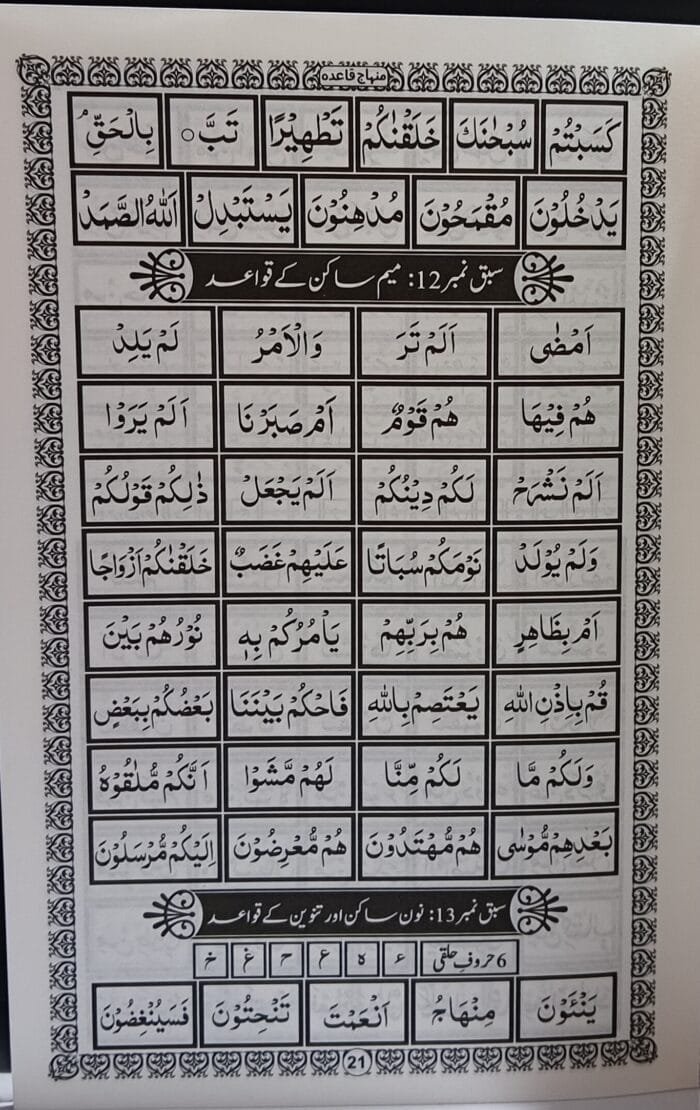 منہاج قاعدہ
كَسَبْتُمْ سُبْحٰنَكَ خَلَقْنٰكُمْ تَطْهِيْرًا تَبَّ ○ بِالْحَقِّ ۙ
يَدْخُلُوْنَ مُقْمَحُوْنَ مُدْهِنُوْنَ يَسْتَبْدِلْ اَللهُ الصَّمَدْ
سبق نمبر 12: میم ساکن کے قواعد
اَمْضٰى اَلَمْ تَرَ وَالْاَمْرُ لَمْ يَلِدْ
هُمْ فِيْهَا هُمْ قَوْمٌ اَمْ صَبَرْنَا اَلَمْ يَرَوْا
اَلَمْ نَشْرَحْ لَكُمْ دِيْنُكُمْ اَلَمْ يَجْعَلْ ذٰلِكُمْ قَوْلُكُمْ
وَلَمْ يُوْلَدْ نَوْمَكُمْ سُبَاتًا عَلَيْهِمْ غَضَبٌ خَلَقْنٰكُمْ اَزْوَاجًا
اَمْ بِظَاهِرٍ هُمْ بِرَبِّهِمْ يَاْمُرُكُمْ بِهٖ نُوْرُهُمْ بَيْنَ
قُمْ بِاِذْنِ اللهِ يَعْتَصِمْ بِاللهِ فَاحْكُمْ بَيْنَنَا بَعْضُكُمْ بِبَعْضٍ
وَلَكُمْ مَّا لَكُمْ مِّنَّا لَهُمْ مَّشَوْا اَنَّكُمْ مُّلٰقُوْهُ
بَعْدِهِمْ مُّوْسٰى هُمْ مُّهْتَدُوْنَ هُمْ مُّعْرِضُوْنَ اِلَيْكُمْ مُّرْسَلُوْنَ
سبق نمبر 13: نون ساکن اور تنوین کے قواعد
6 حروف حلقی ء ہ ع ح غ خ
يَنْئَوْنَ مِنْهَاجُ اَنْعَمْتَ تَنْحِتُوْنَ فَسَيُنْغِضُوْنَ
21